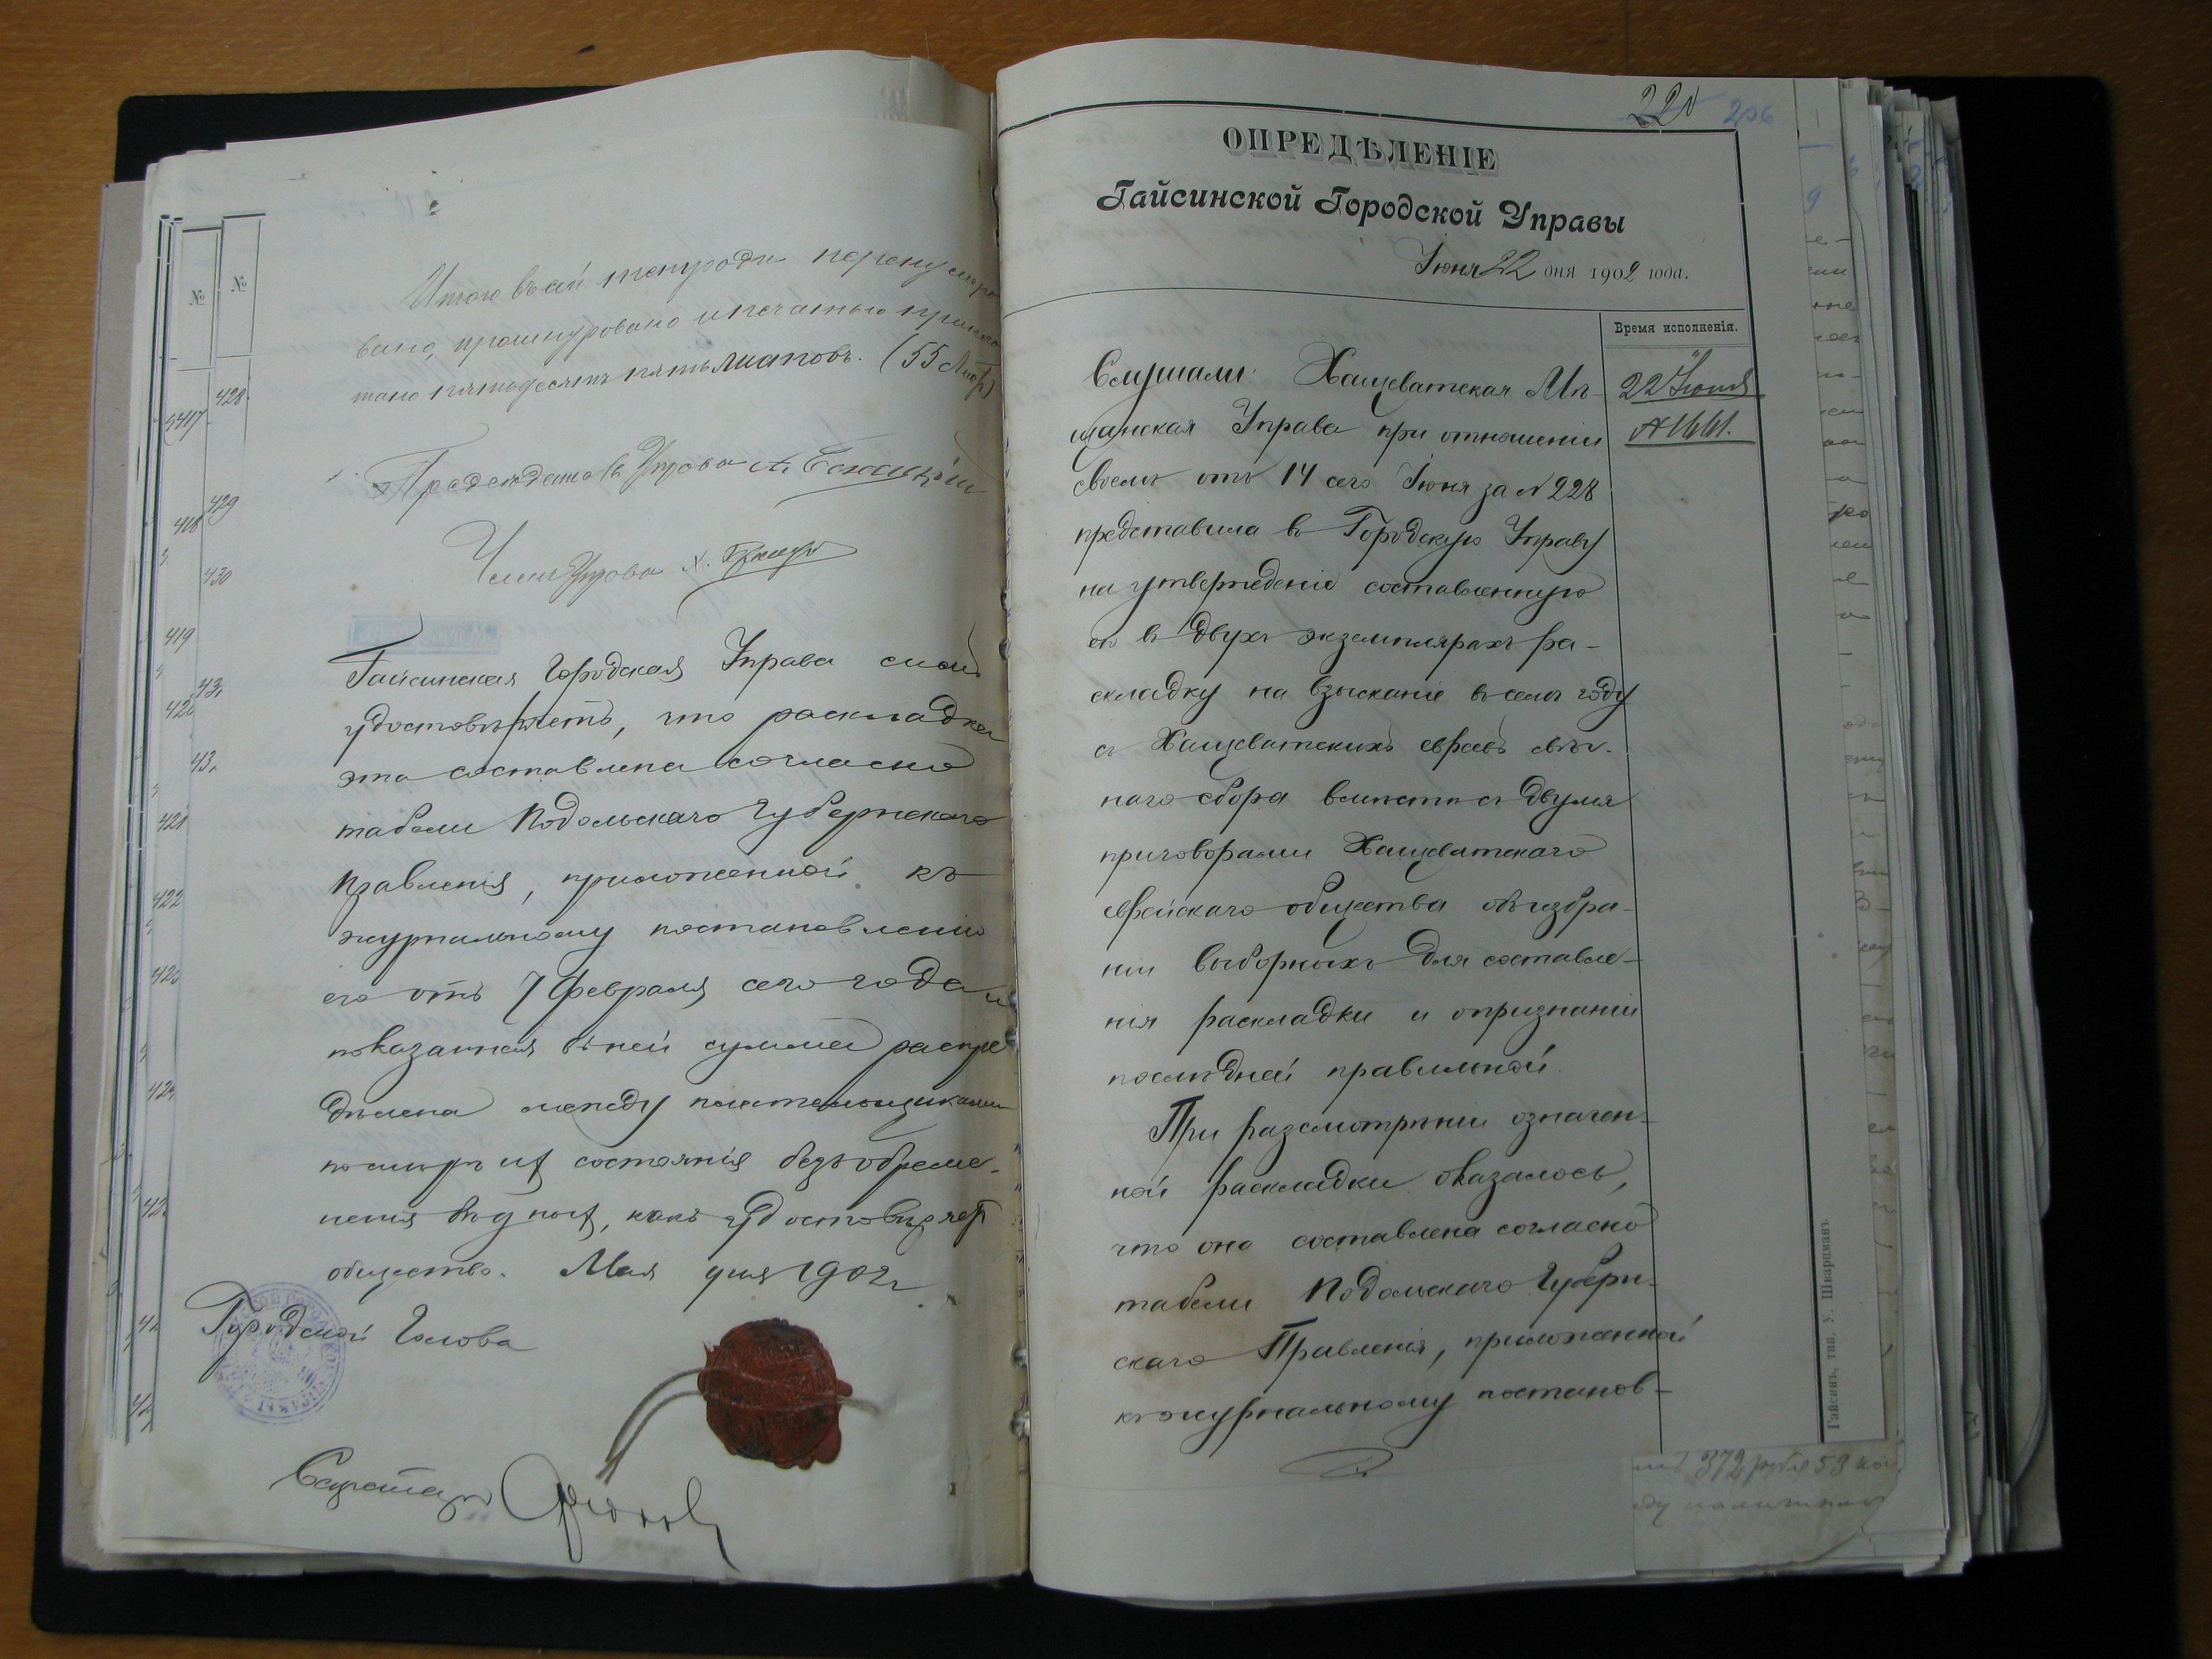 №
№
428
417
429
418
430
419
420
421
422
Итого въ сей тетради перенумеро
вано, прошнуровано и печатью припеча
тано пятьдесятъ пять листовъ. (55 Лист)
Предсѣдатель Управы
Членъ Управы
Гайсинская Городская Управа симъ
удостовѣряетъ, что раскладка
эта составлена согласно
табели Подольскаго Губернскаго
Правленія, приложенной къ
журнальному постановленію
его отъ 7 Февраля сего года и
показанная въ ней сумма распре
дѣлена между плательщиками
по мѣрѣ ихъ состоянія безъ обреме-
ненія бѣдныхъ, какъ удостовѣряетъ
общество. Мая дня 1902 г
Городской Голова
Секретарь
220 206
ОПРЕДѢЛЕНІЕ
Гайсинской Городской Управы
Іюня 22 дня 1902 года.
Время исполненія.
22 Іюня
№ 1661.
Слушали: Хащеватская Мѣ-
щанская Управа при отношеніи
своемъ отъ 14 сего Іюня за № 228
представила въ Городскую Управу
на утвержденіе составленную
ею въ двухъ экземплярахъ ра-
складку на взысканіе въ семъ году
съ Хащеватскихъ евреевъ свѣч-
наго сбора вмѣстѣ съ двумя
приговорами Хащеватскаго
еврейскаго общества объ избра-
ніи выборныхъ для составле-
нія раскладки и о признаніи
послѣдней правильной.
При разсмотрѣніи означен-
ной раскладки оказалось,
что она составлена согласно
табели Подольскаго Губерн-
скаго Правленія, приложенной
къ журнальному постанов-
Гайсинъ, тип. У. Шварцманъ
372 рубля 53 коп